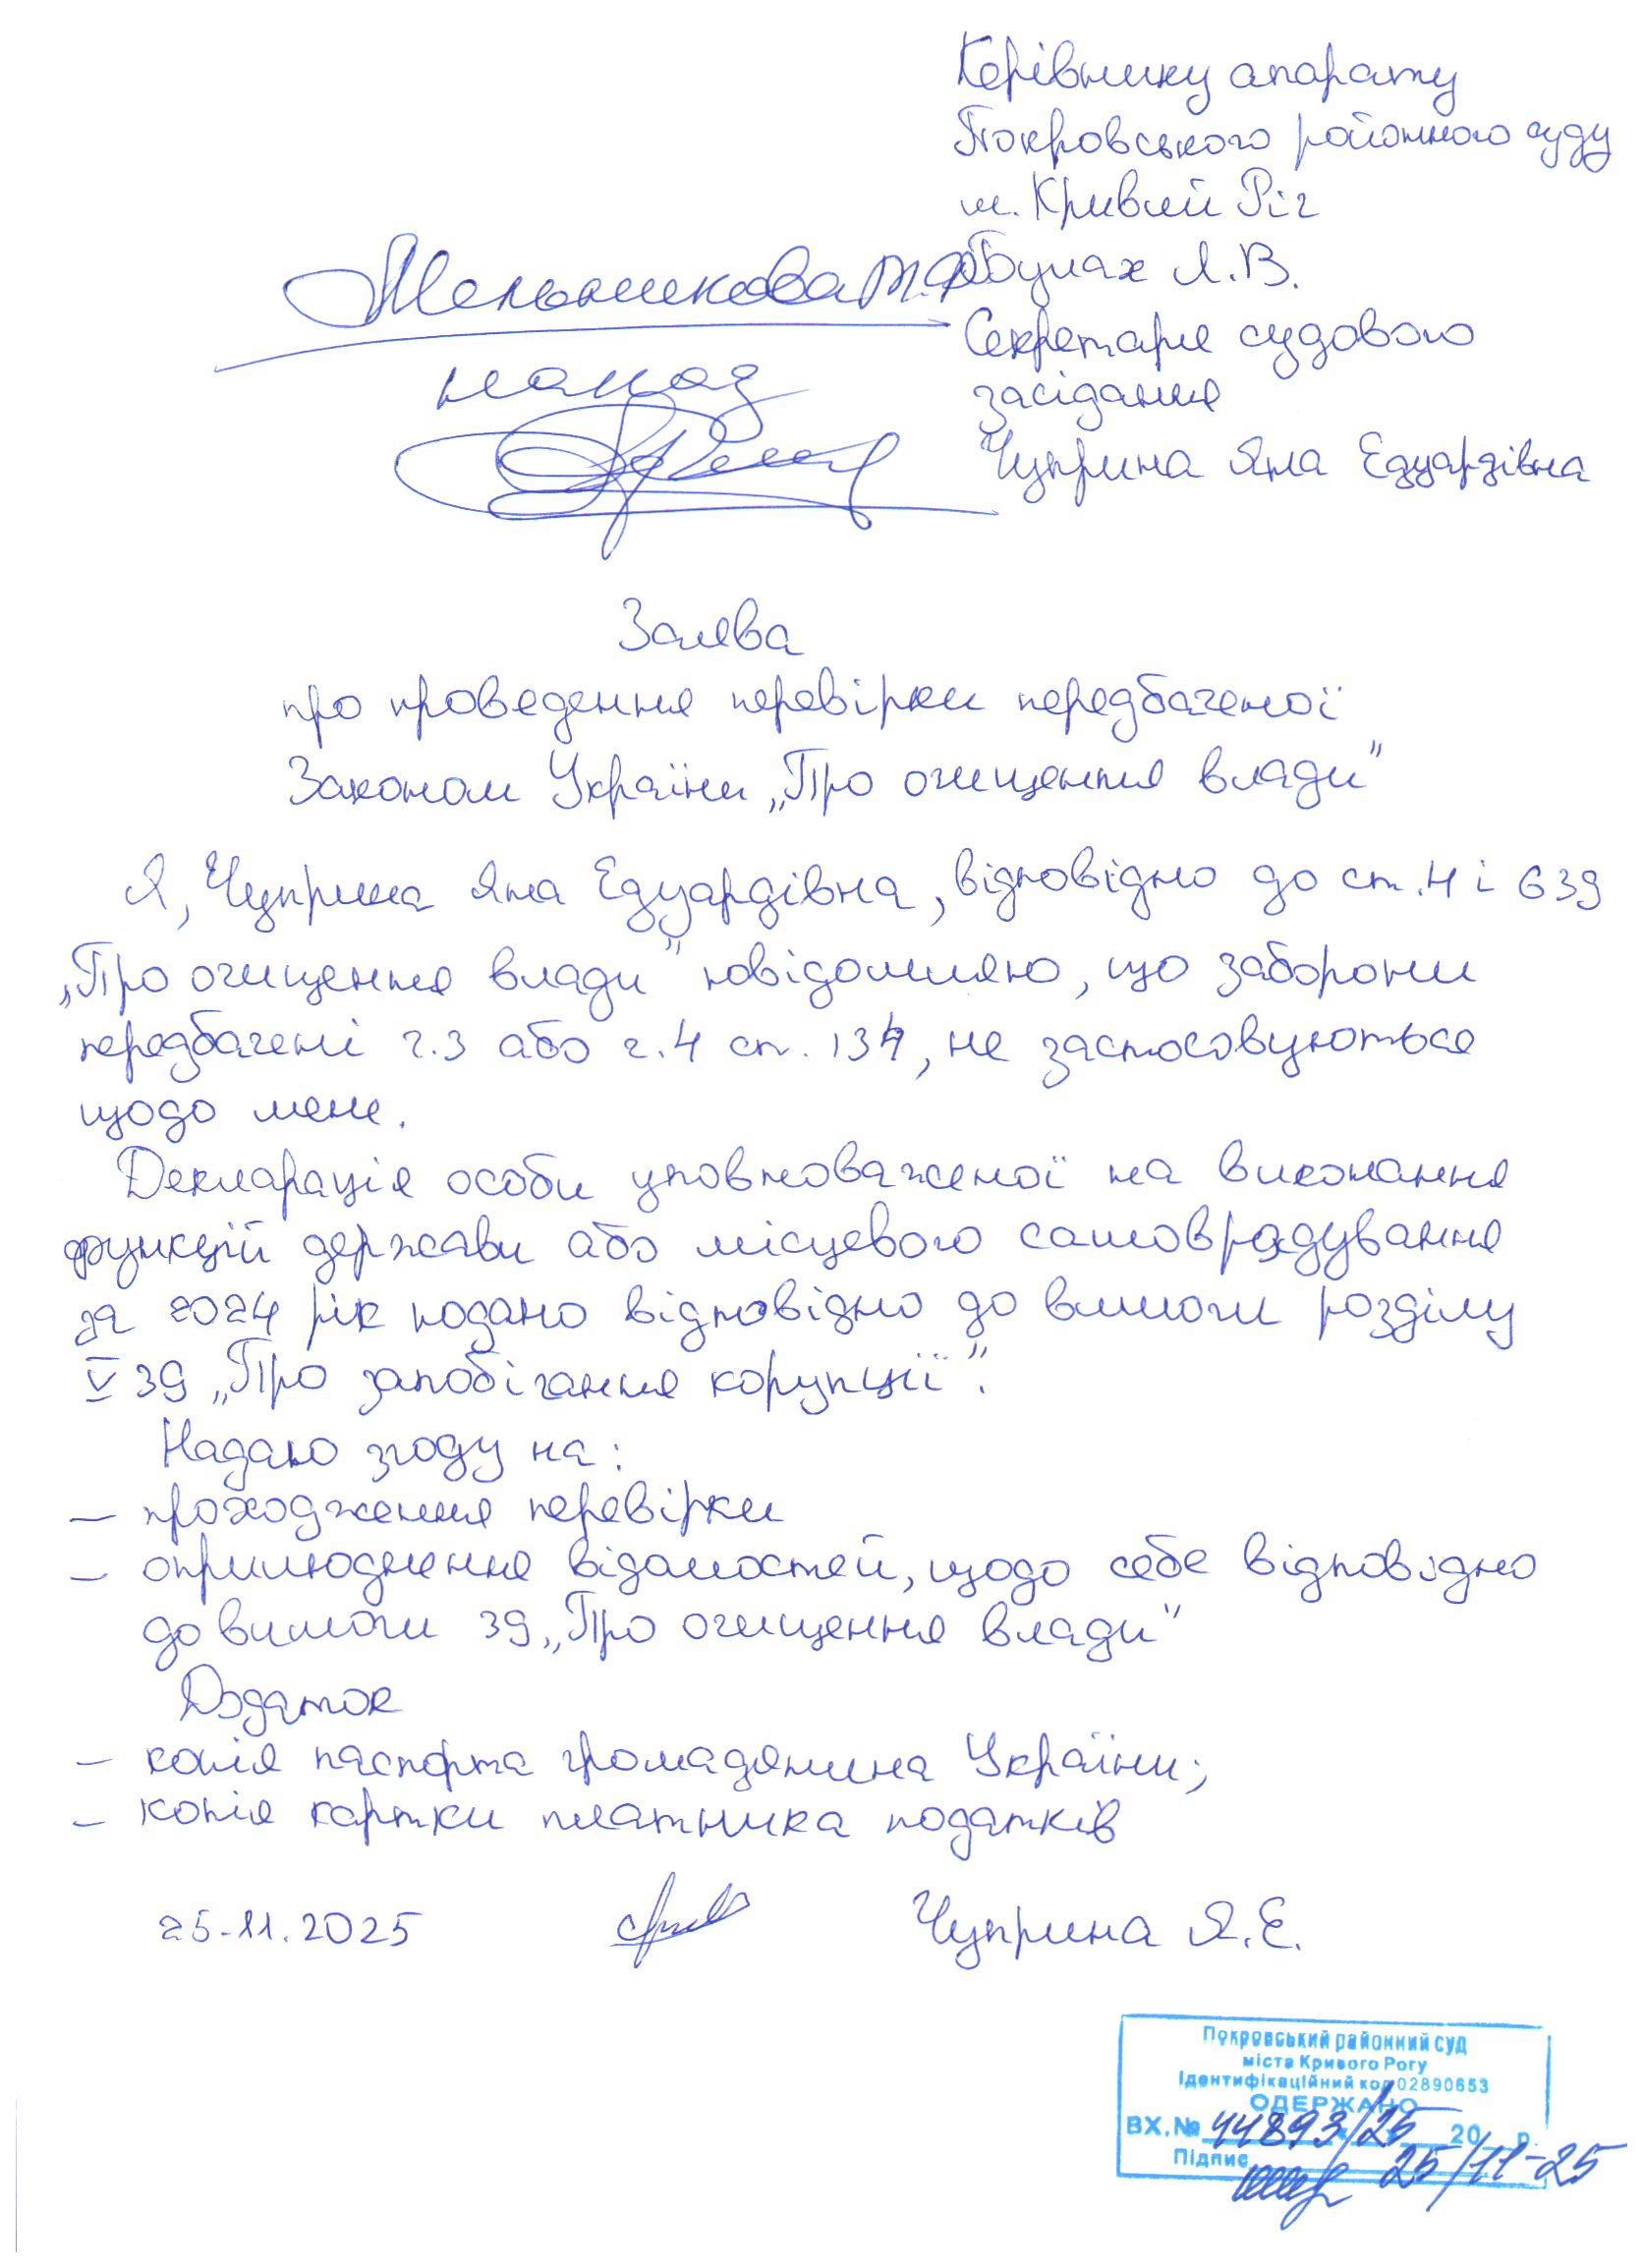 Керівнику апарату
Покровського районного суду
м. Кривий Ріг
Бумах Я.В.
Секретаря судового
засідання
Чуприна Яна Едуардівна
Мельникова Т.Ф.
наказ
Заява
про проведення перевірки передбаченої
Законом України „Про очищення влади"
Я, Чуприна Яна Едуардівна, відповідно до ст. 4 і 6 ЗУ
„Про очищення влади" повідомляю, що заборони
передбачені ч.3 або ч.4 ст. 1 ЗУ, не застосовуються
щодо мене.
Декларація особи уповноваженої на виконання
функцій держави або місцевого самоврядування
за 2024 рік подано відповідно до вимоги розділу
V ЗУ „Про запобігання корупції".
Надаю згоду на:
— проходження перевірки
— оприлюднення відомостей, щодо себе відповідно
до вимоги ЗУ „Про очищення влади"
Додаток
— копія паспорта громадянина України;
— копія картки платника податків
25.11.2025 Чуприна Я.Е.
Покровський районний суд
міста Кривого Рогу
Ідентифікаційний код 02890653
ОДЕРЖАНО
ВХ.№ 44893/25 20 р.
Підпис 25/11-25